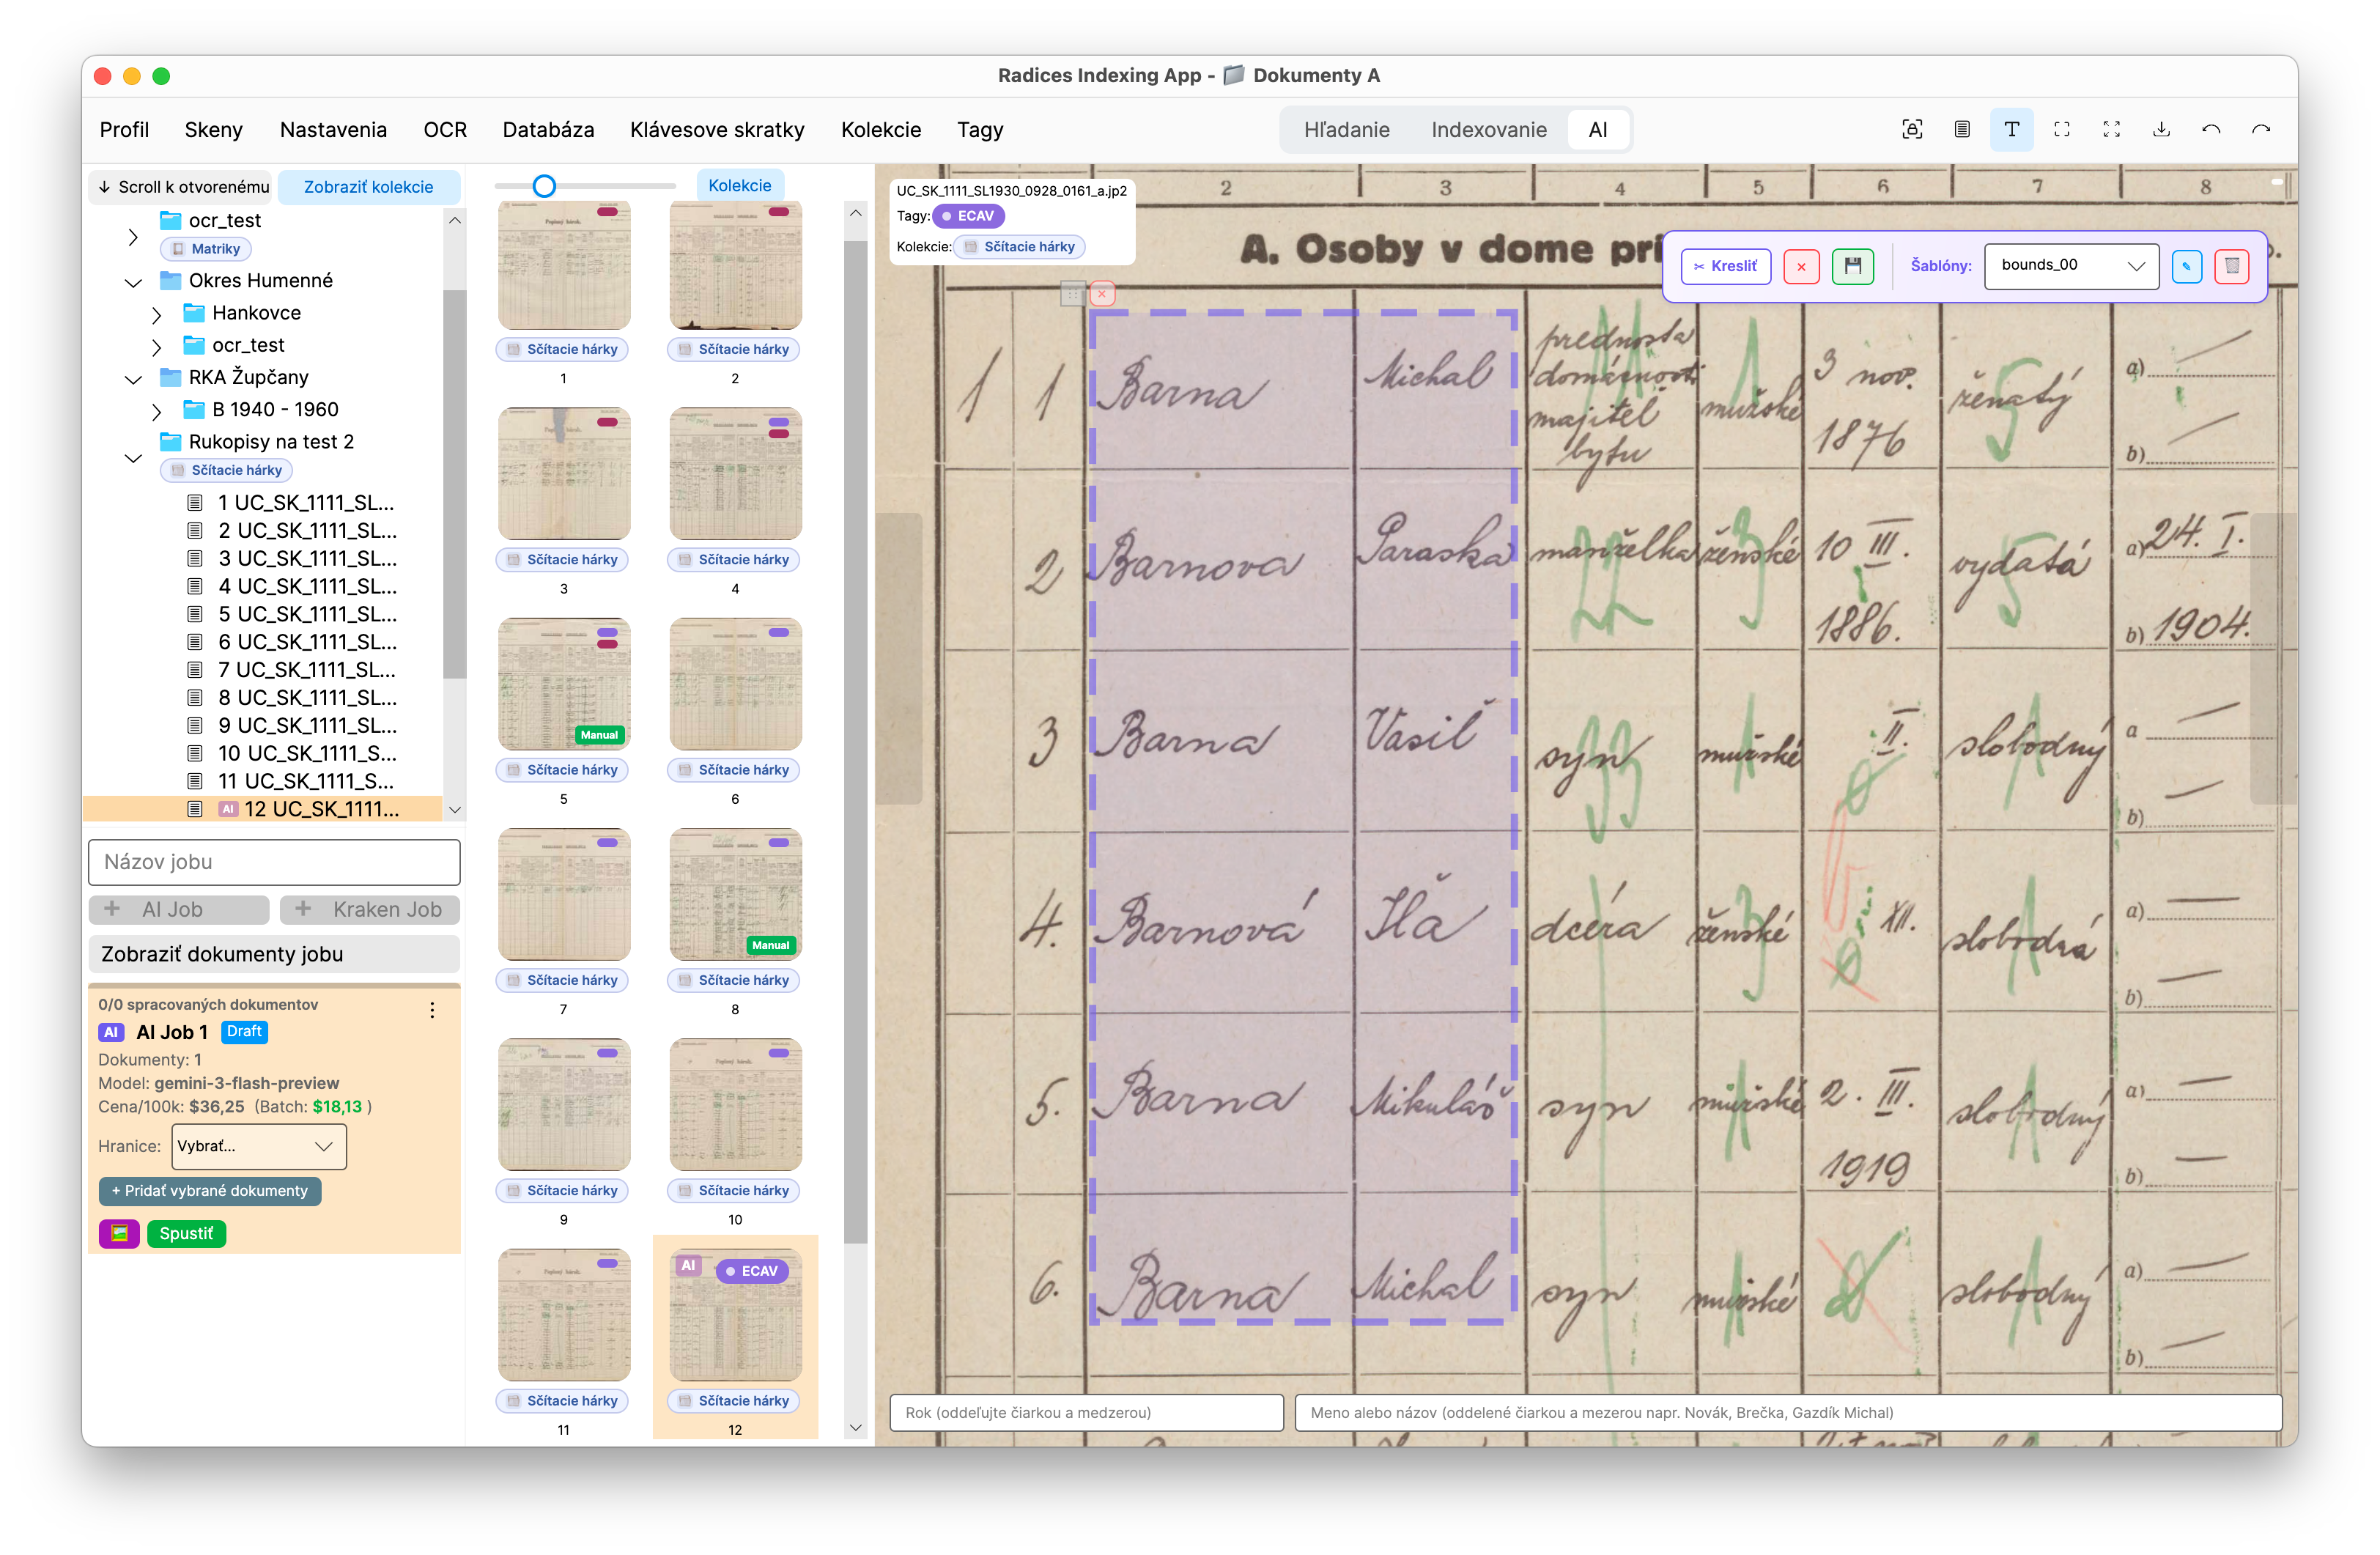 Radices Indexing App - Dokumenty A
Profil Skeny Nastavenia OCR Databáza Klávesove skratky Kolekcie Tagy Hľadanie Indexovanie AI
Scroll k otvorenému Zobraziť kolekcie
ocr_test
Matriky
Okres Humenné
Hankovce
ocr_test
RKA Župčany
B 1940 - 1960
Rukopisy na test 2
Sčítacie hárky
1 UC_SK_1111_SL...
2 UC_SK_1111_SL...
3 UC_SK_1111_SL...
4 UC_SK_1111_SL...
5 UC_SK_1111_SL...
6 UC_SK_1111_SL...
7 UC_SK_1111_SL...
8 UC_SK_1111_SL...
9 UC_SK_1111_SL...
10 UC_SK_1111_S...
11 UC_SK_1111_S...
AI 12 UC_SK_1111...
Názov jobu
+ AI Job + Kraken Job
Zobraziť dokumenty jobu
0/0 spracovaných dokumentov
AI AI Job 1 Draft
Dokumenty: 1
Model: gemini-3-flash-preview
Cena/100k: $36,25 (Batch: $18,13 )
Hranice: Vybrať...
+ Pridať vybrané dokumenty
Spustiť
Kolekcie
Sčítacie hárky Sčítacie hárky
1 2
Sčítacie hárky Sčítacie hárky
3 4
Manual
Sčítacie hárky Sčítacie hárky
5 6
Manual
Sčítacie hárky Sčítacie hárky
7 8
Sčítacie hárky Sčítacie hárky
9 10
AI ECAV
Sčítacie hárky Sčítacie hárky
11 12
UC_SK_1111_SL1930_0928_0161_a.jp2
Tagy: ECAV
Kolekcie: Sčítacie hárky
2 3 4 5 6 7 8
A. Osoby v dome pri
Kresliť Šablóny: bounds_00
1 1 Barna Michal prednosta domácnosti majiteľ bytu mužské 3 nov. 1876 ženatý a) b)
2 Barnova Paraska manželka ženské 10 III. 1886. vydatá a) 24. I. b) 1904.
3 Barna Vasiľ syn mužské II. slobodný a b)
4. Barnová Iľa dcéra ženské XII. slobodná a) b)
5. Barna Mikuláš syn mužské 2. III. 1919 slobodný a) b)
6. Barna Michal syn mužské slobodný a) b)
Rok (oddeľujte čiarkou a medzerou) Meno alebo názov (oddelené čiarkou a mezerou napr. Novák, Brečka, Gazdík Michal)